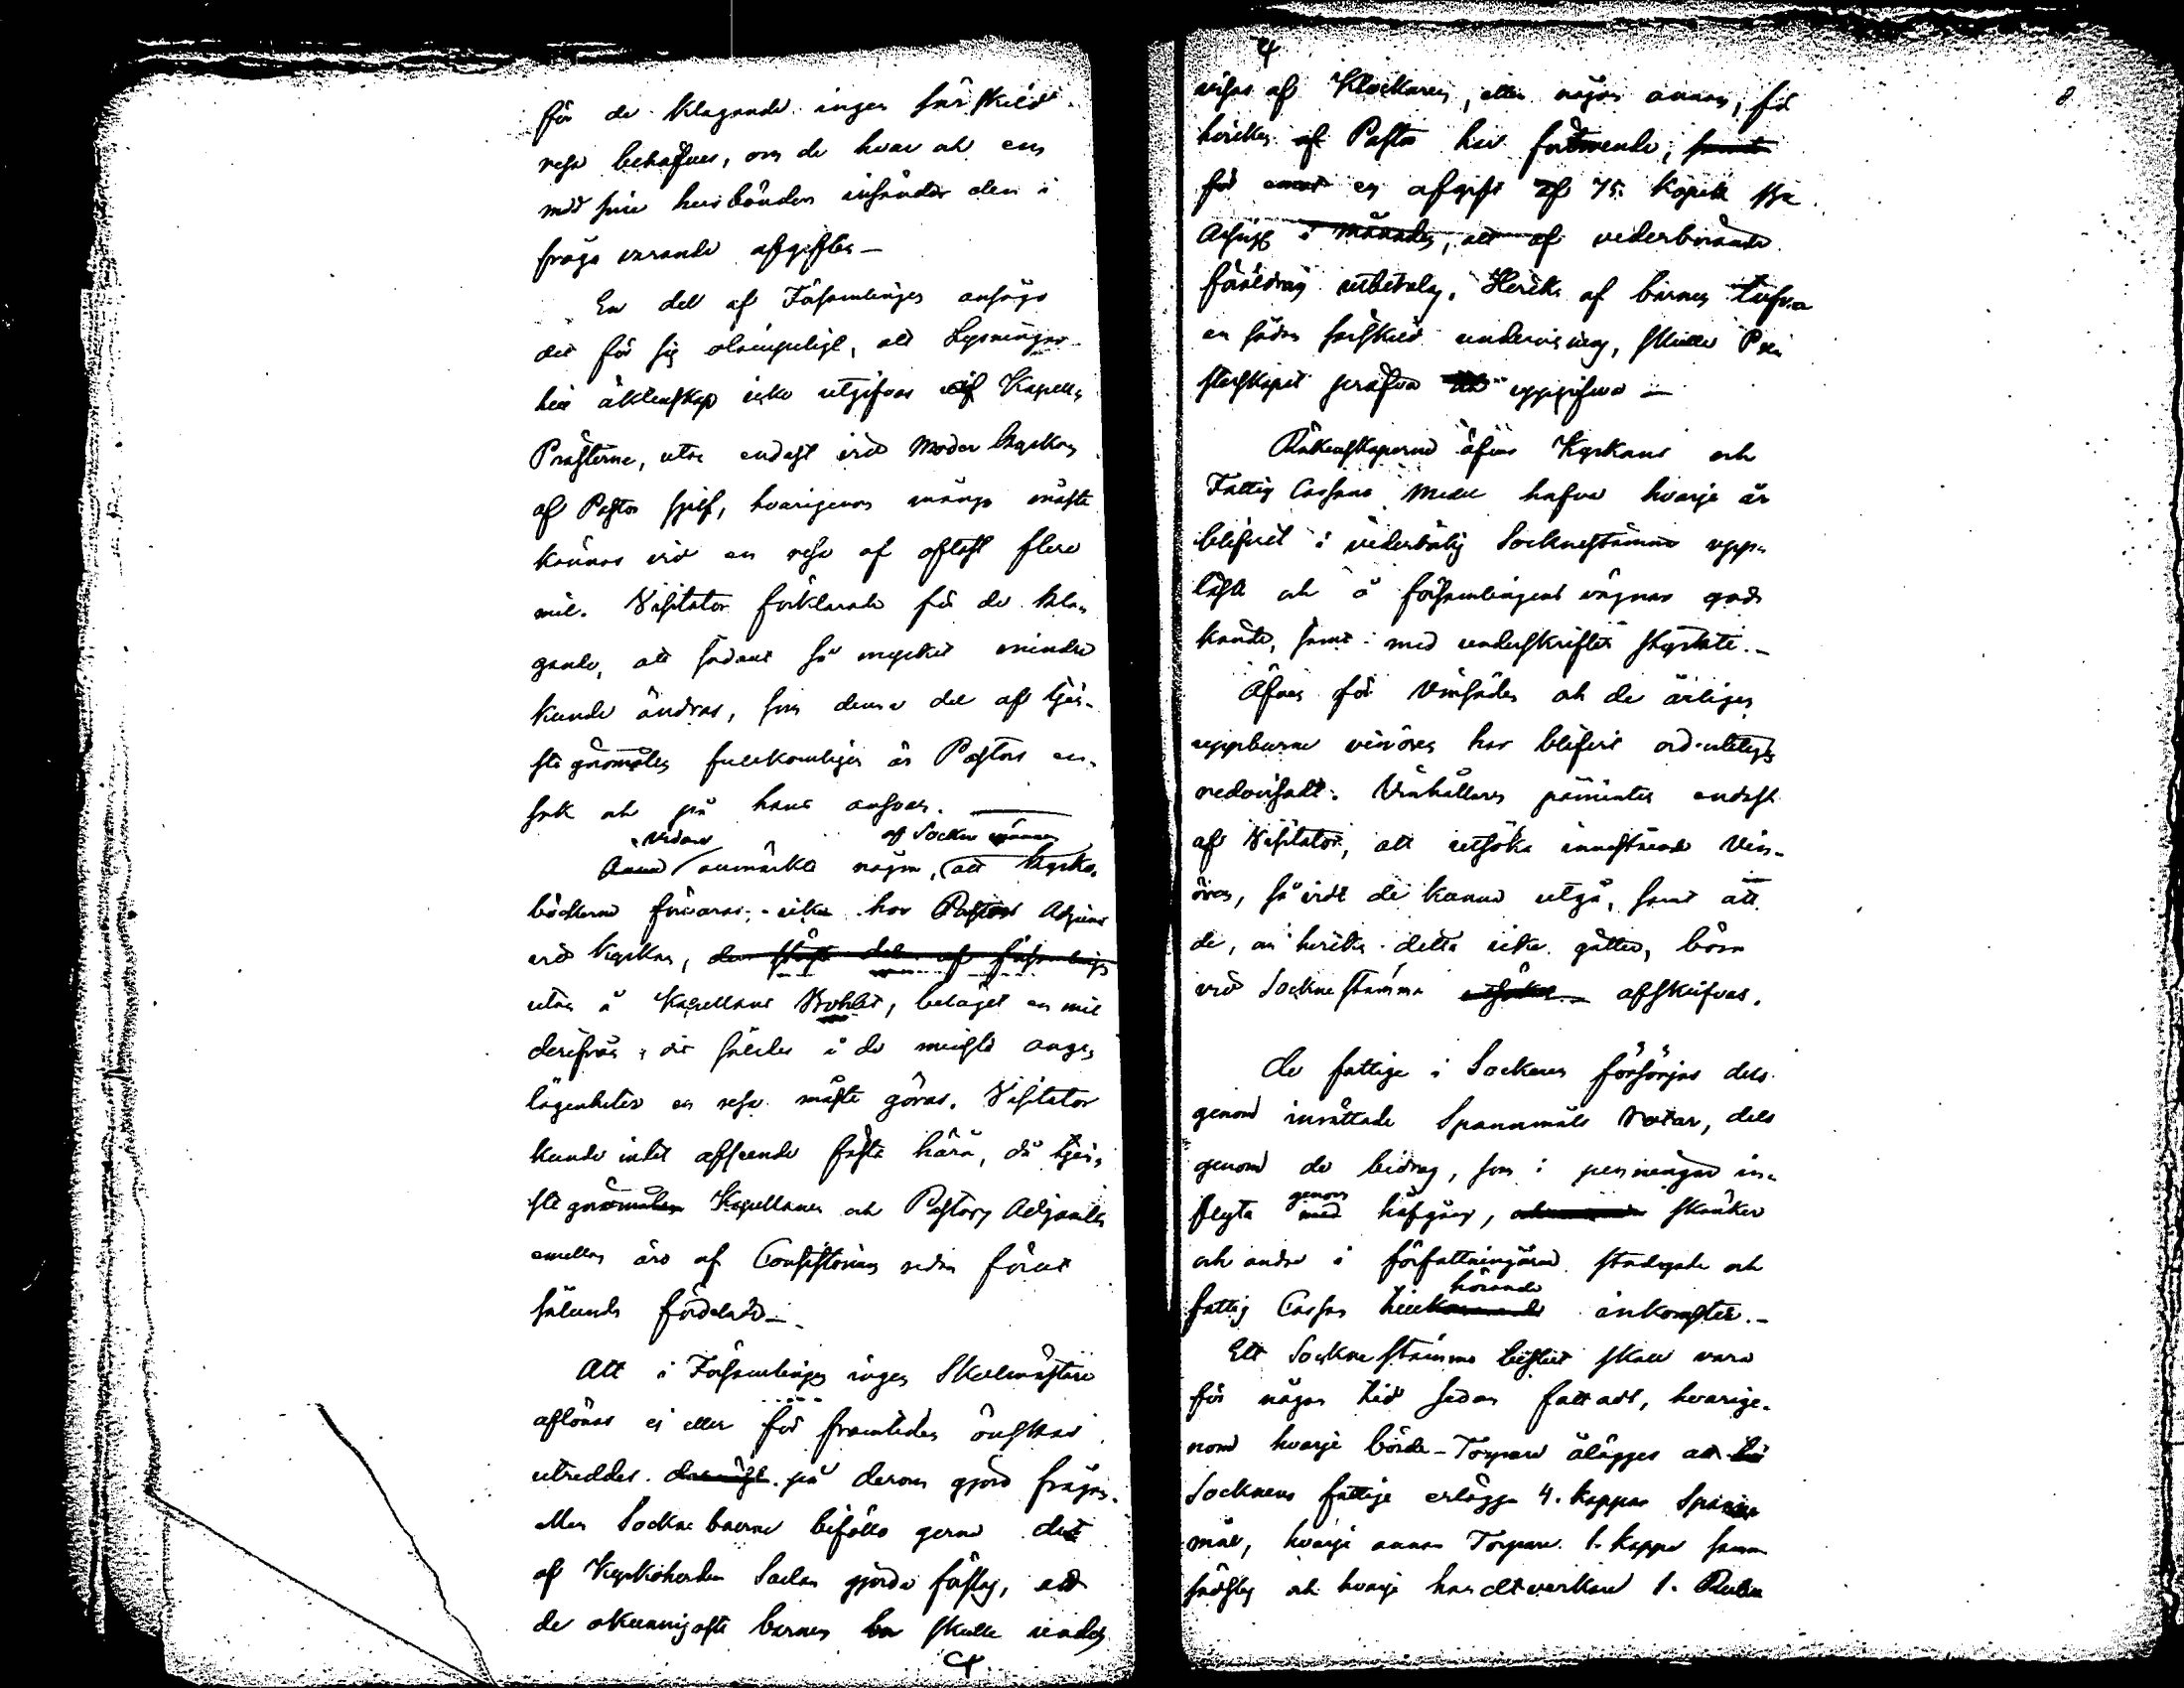 för de klagande ingen särskild
resa behöfves, om de hvar och en
med sine husbönder insänder den i
fråga varande afgiften —
En del af Församlingen ansågo
det för sig olämpeligt, att Lysningar
till äktenskap icke utgifvas af Kapells
Prästerne, utan endast vid Moder kyrkan
af Pastor sjelf, hvarigenom många måste
kännas vid en resa af oftast flere
mil. Visitator förklarade för de kla-
gande, att sådant så mycket mindre
kunde ändras, som denna del af tjen-
stegöromålen fullkomligen är Pastors en-
sak och på hans ansvar. —
vidare af Socknemännen
anmärkte någon, att kyrko-
böckerna förvaras icke hos Pastors Adjunct
vid kyrkan, den största del af församlingen
utan å Kapellans Bohlet, beläget en mil
derifrån, dit således i de minsta ange-
lägenheter en resa måste göras. Visitator
kunde intet afseende fästa härå, då tjen-
stegöromålen Kapellanen och Pastors Adjuncten
emellan äro af Consistorium redan förut
sålunda fördelade —
Att i Församlingen ingen Skolmästare
aflönas ej eller för framtiden önskas
utreddes på derom gjord frågan.
Men Sockneboerne biföllo gerna det
af Kyrkoherden Sadan gjorde förslag, att
de okunnigaste barnen skulle undes
4
4
8
visas af Klockaren, eller någon annan, för
hvilken Pastor har förtroende,
för en afgift af 75 kopek
i månaden, att af vederbörande
föräldrar utbetalas. Hvilka af barnen tarfva
en sådan särskild undervisning, skulle Pre-
sterskapet pröfva uppgifva —
Räkenskaperne öfver Kyrkans och
Fattig Cassans Medel hafva hvarje år
blifvit i vederbörlig Socknestämma upp-
läste och å församlingens vägnar god-
kände, samt med underskrifter styrkte. —
Äfven för Vinsäden och de årligen
uppburne vinören har blifvit ordentligen
redovisadt. Vinhållaren påmintes endast
af Visitator, att utsöka innestående Vin-
ören, så vidt de kunna utgå, samt att
de, om hvilka detta icke gäller, böra
vid Sockne stämma afskrifvas.
De fattige i Socknen försörjas dels
genom inrättade Spannmåls Rotar, dels
genom de bidrag, som i penningar in-
flyta genom med håfgång, skänker
och andra i författningarne stadgade och
hörande
fattig Cassan tillkommande inkomster. —
Ett Sockne stämmo beslut skall vara
för någon tid sedan fattadt, hvarige-
nom hvarje börde-Torpare ålägges att till
Socknens fattige erlägga 4. kappar Spanne-
mål, hvarje annan Torpare 1. kappe samma
sädslag och hvarje handtverkare 1. Rubel